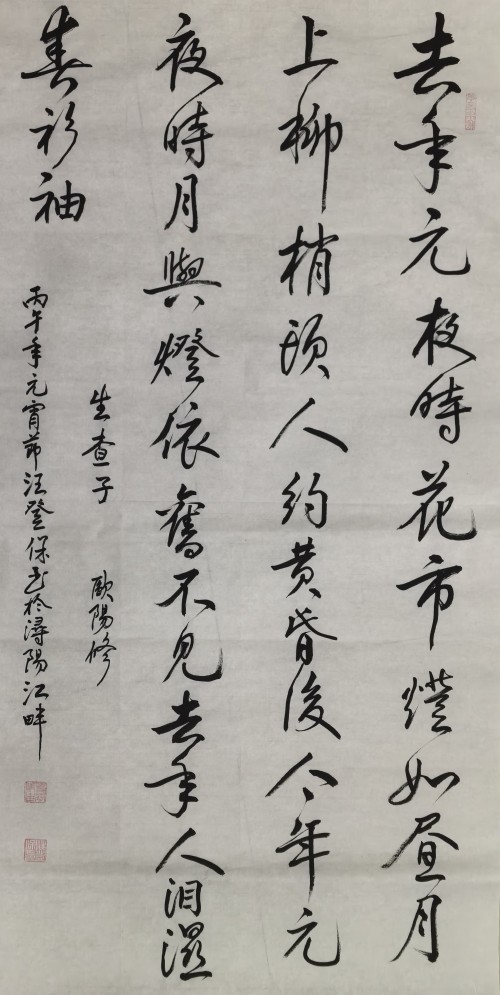 去年元夜時花市燈如晝月
上柳梢頭人約黃昏後今年元
夜時月與燈依舊不見去年人泪濕
春衫袖
生查子 歐陽修
丙午年元宵節汪登保书於潯陽江畔